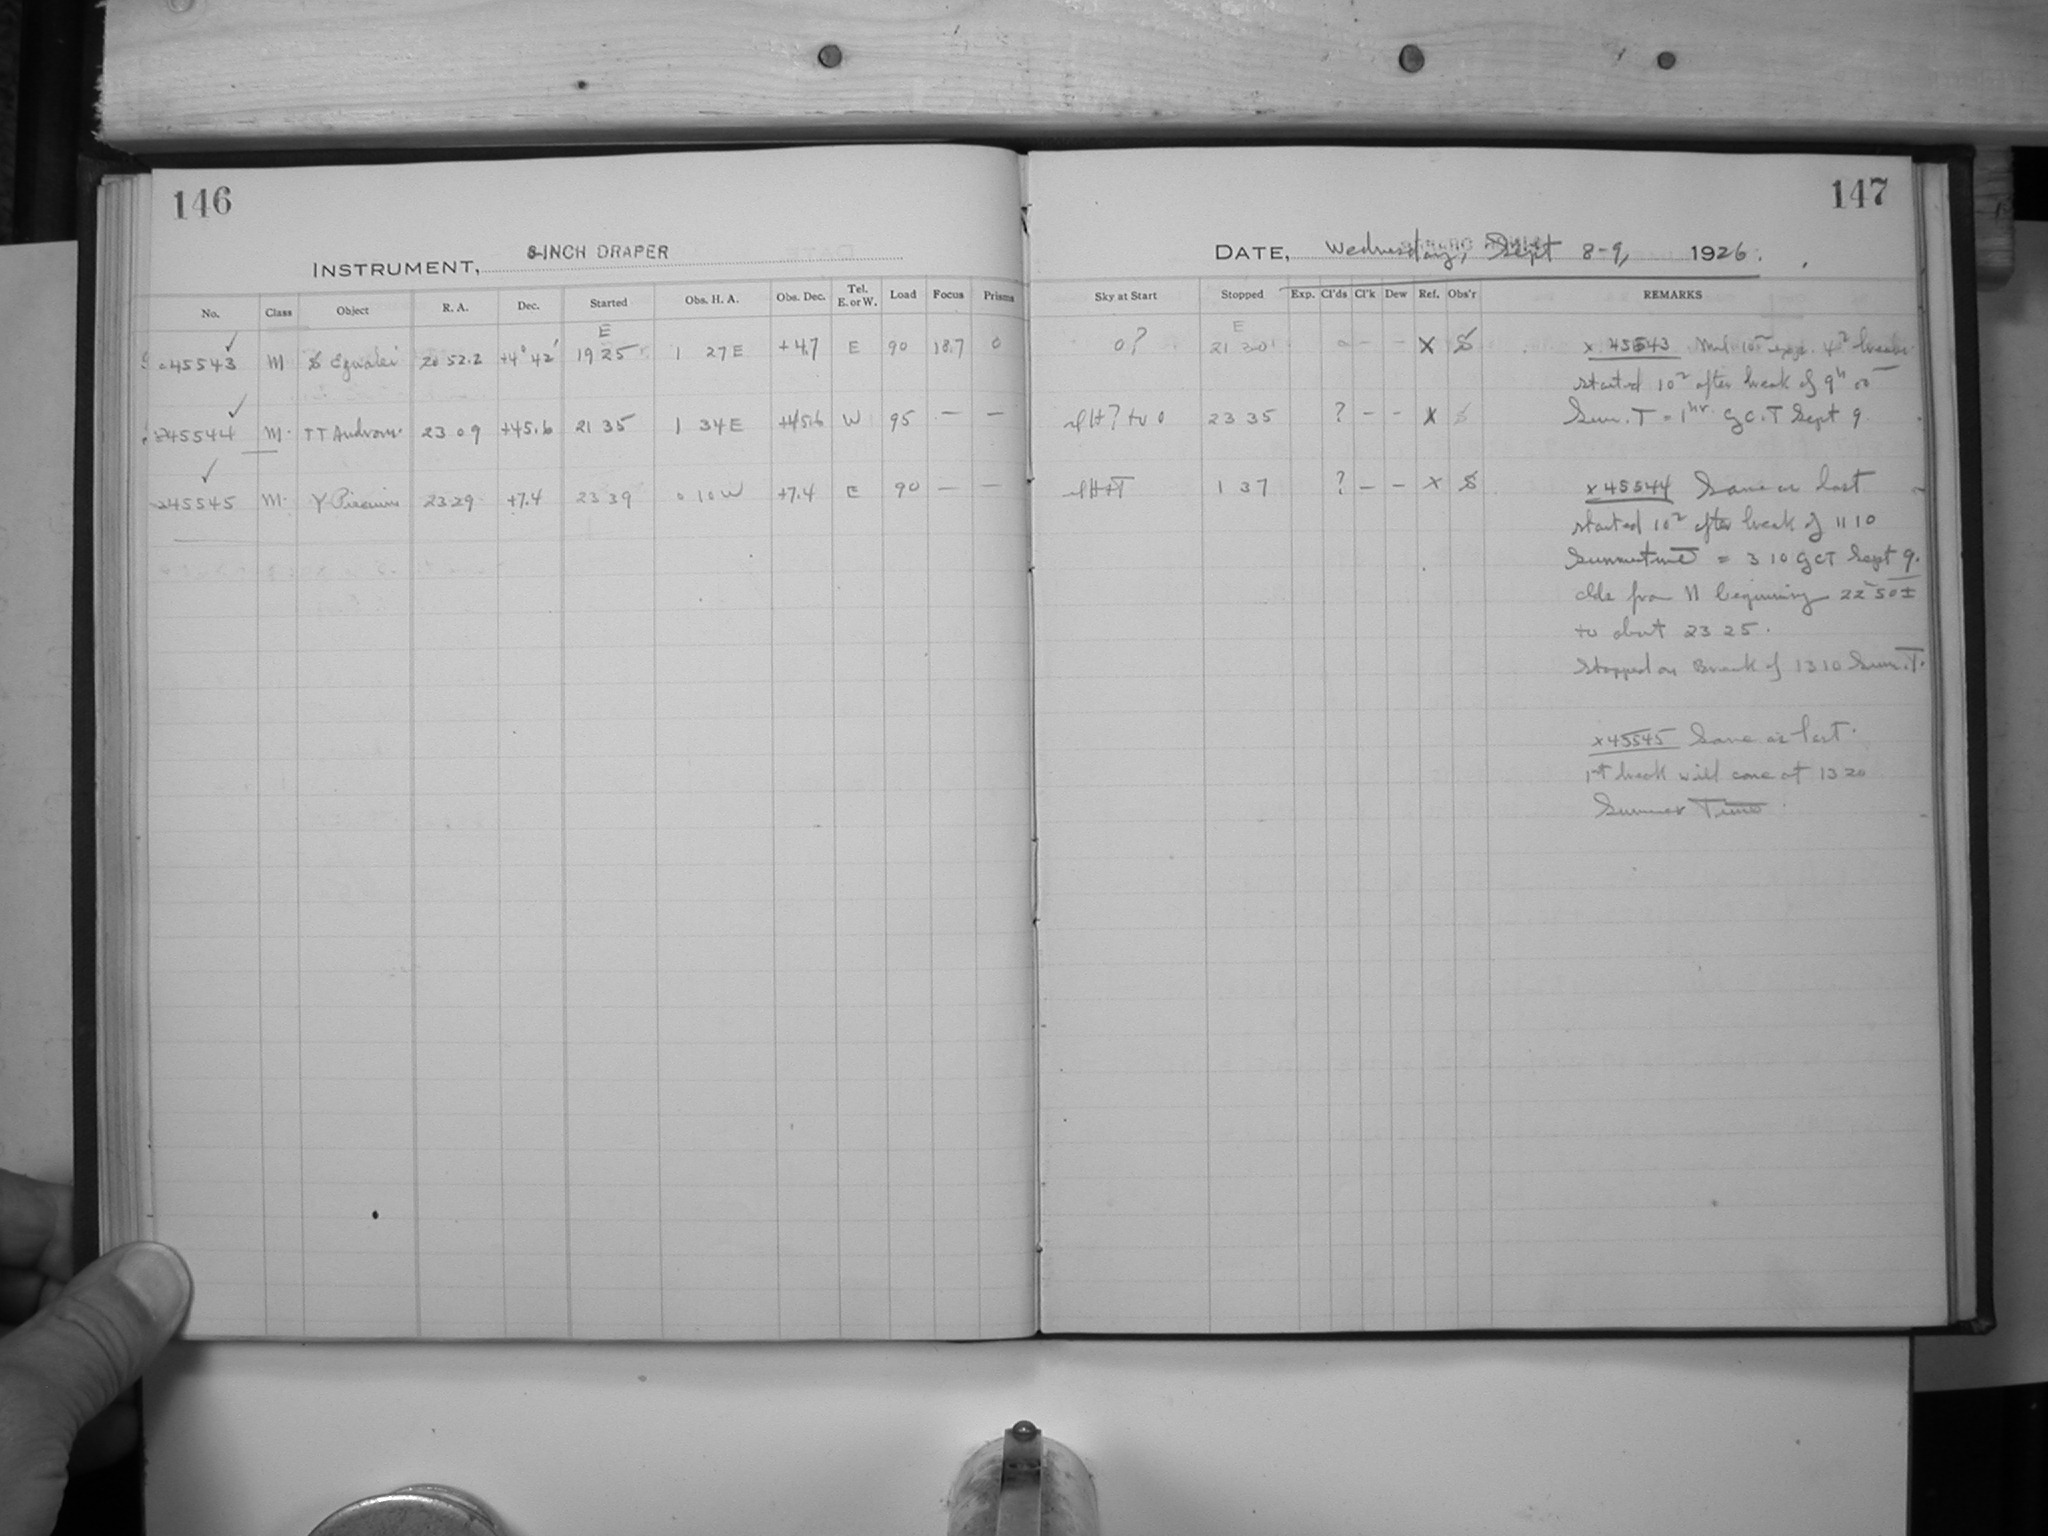 146
INSTRUMENT, 8-INCH DRAPER
No. Class Object R. A. Dec. Started Obs. H. A. Obs. Dec. Tel. E. or W. Load Focus Prisms
E
45543 M S Equulei 20 52.2 +4° 42' 19 25 1 27 E +4.7 E 90 18.7 0
45544 M TT Androm. 23 09 +45.6 21 35 1 34 E +45.6 W 95 — —
45545 M Piscium 23 29 +7.4 23 39 0 10 W +7.4 E 90 — —
147
DATE, Wednesday, Sept 8-9, 1926.
Sky at Start Stopped Exp. Cl'ds Cl'k Dew Ref. Obs'r REMARKS
E
0? 21 30 0 – – X S
23 35 ? – – X S
1 37 ? – – X S
x 45543 exp. 4
started 10 after break of 9h
Sum. T = 1hr. G.C.T Sept 9
x 45544 Same as last
started 10 after break of 11 10
Summertime = 3 10 GCT Sept 9.
clds from N beginning 22 50±
to about 23 25.
Stopped on Break of 13 10 Sum. T.
x 45545 Same as last.
1st break will come at 13 20
Summer Time